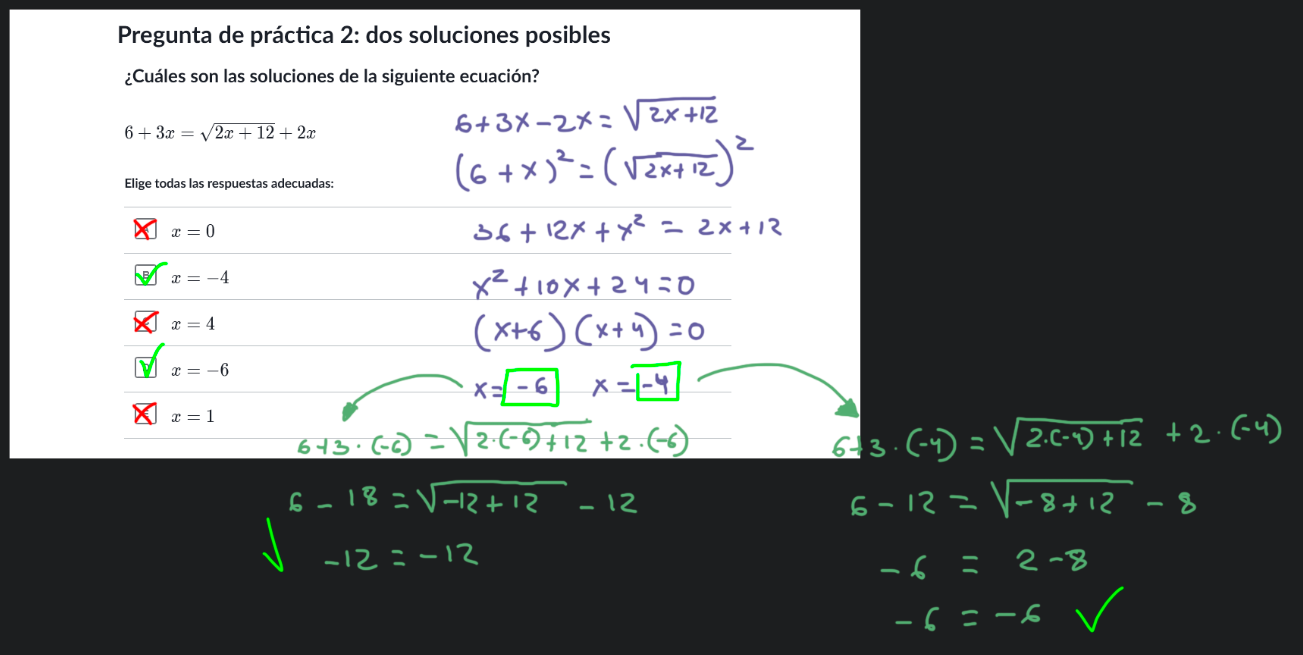 Pregunta de práctica 2: dos soluciones posibles
¿Cuáles son las soluciones de la siguiente ecuación?
6 + 3x = √(2x + 12) + 2x
Elige todas las respuestas adecuadas:
x = 0
B x = −4
x = 4
D x = −6
x = 1
6+3x−2x = √(2x+12)
(6+x)² = (√(2x+12))²
36 + 12x + x² = 2x+12
x² + 10x + 24 = 0
(x+6)(x+4) = 0
x = −6 x = −4
6+3·(−6) = √(2·(−6)+12) + 2·(−6)
6 − 18 = √(−12+12) − 12
−12 = −12
6+3·(−4) = √(2·(−4)+12) + 2·(−4)
6 − 12 = √(−8+12) − 8
−6 = 2−8
−6 = −6 ✓